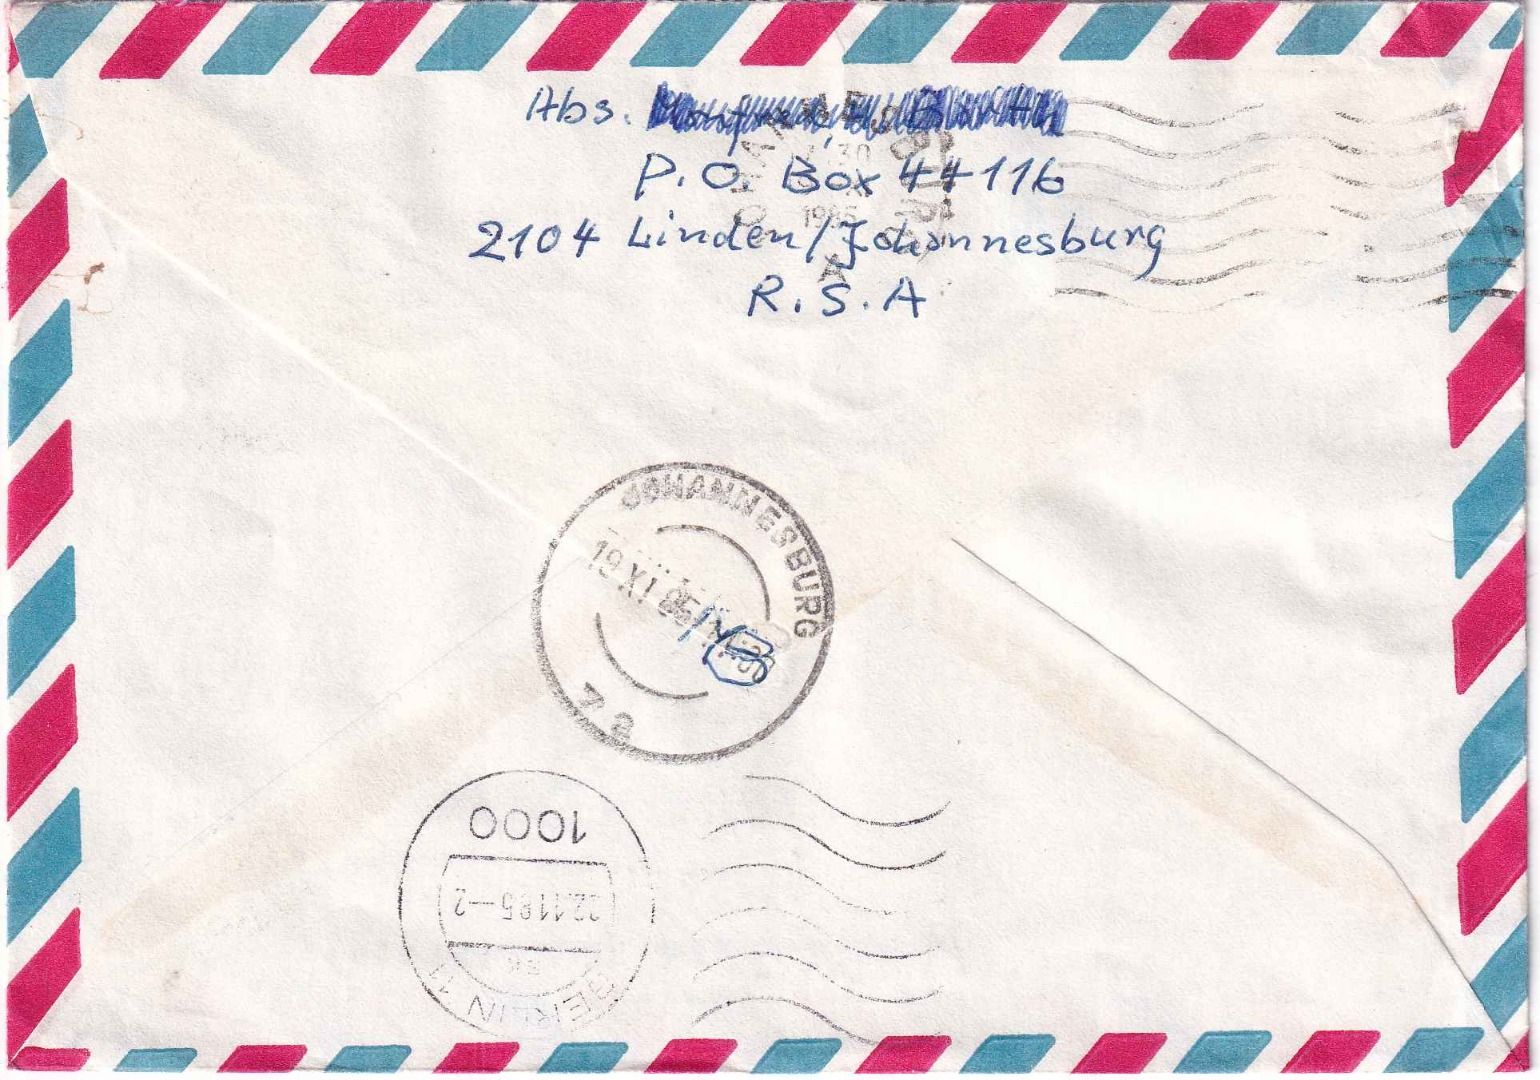 Abs.
P.O. Box 44116
2104 Linden/Johannesburg
R.S.A
JOHANNESBURG
1985
A
JOHANNESBURG
19 XI 85
1000
22.11.85-2
BERLIN 11